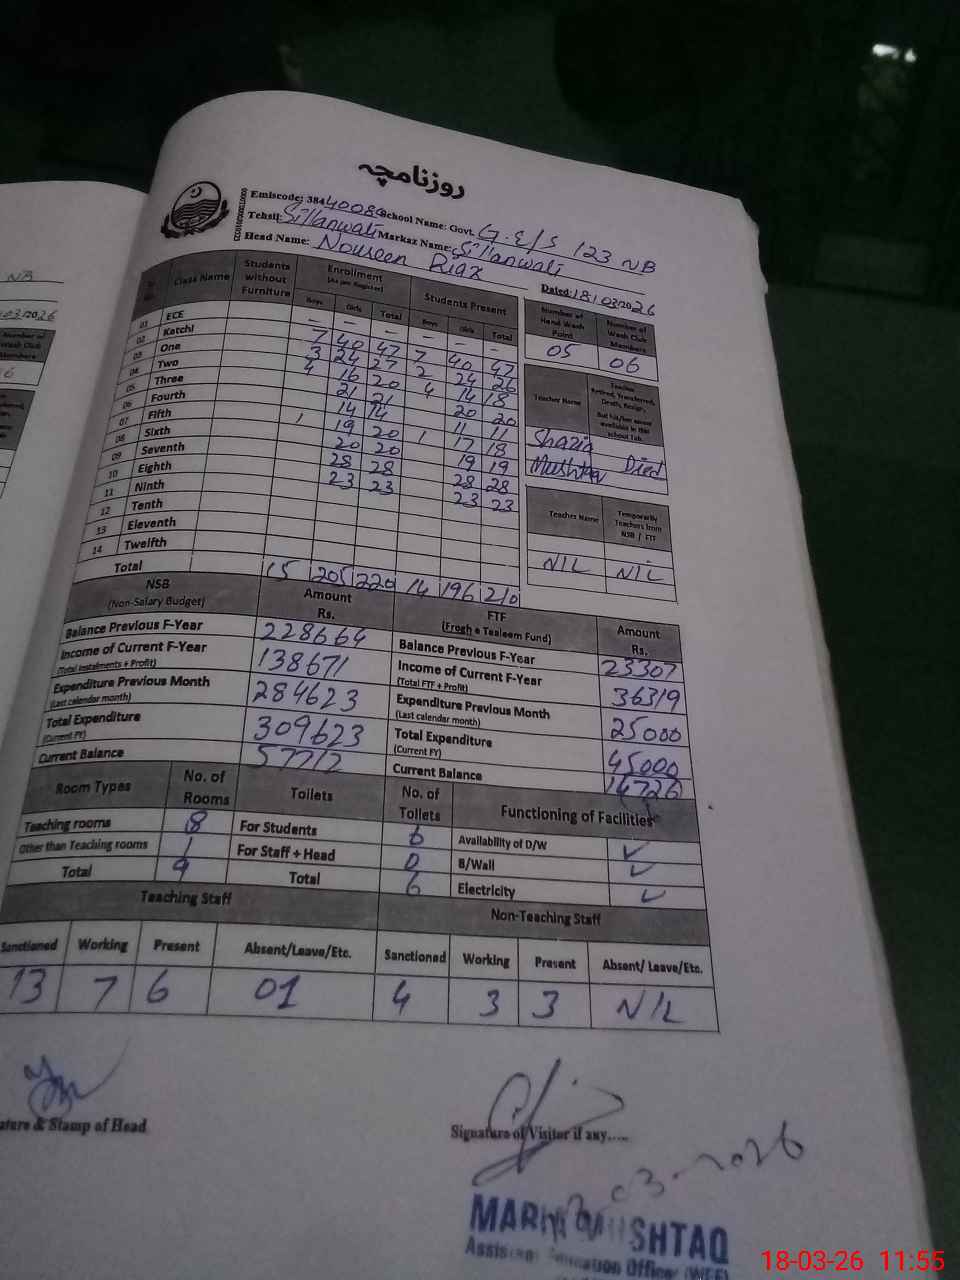 روزنامچہ
Emiscode: 38440086 School Name: Govt. G.E/S 123 NB
Tehsil: Sillanwali Markaz Name: Sillanwali
Head Name: Nowseen Riaz
Dated: 18/03/2026
Class Name Students without Furniture Enrollment (As per Register) Students Present
Boys Girls Total Boys Girls Total
01 ECE – – – – – –
02 Katchi 7 40 47 7 40 47
03 One 3 24 27 2 24 26
04 Two 4 16 20 4 14 18
05 Three 21 21 20 20
06 Fourth 14 14 11 11
07 Fifth 1 19 20 1 17 18
08 Sixth 20 20 19 19
09 Seventh 28 28 28 28
10 Eighth 23 23 23 23
11 Ninth
12 Tenth
13 Eleventh
14 Twelfth
Total 15 205 220 14 196 210
Number of Hand Wash Point Number of Wash Club Members
05 06
Teacher Name Teacher Retired, Transferred, Death, Resign, But his/her name available in the school Tab.
Shazia
Mushtaq Died
Teacher Name Temporarily Teachers from NSB / FTF
NIL NIL
NSB (Non-Salary Budget) Amount Rs. FTF (Frogh e Tealeem Fund) Amount Rs.
Balance Previous F-Year 228664 Balance Previous F-Year 23307
Income of Current F-Year (Total Instalments + Profit) 138671 Income of Current F-Year (Total FTF + Profit) 36319
Expenditure Previous Month (Last calendar month) 284623 Expenditure Previous Month (Last calendar month) 25000
Total Expenditure (Current FY) 309623 Total Expenditure (Current FY) 45000
Current Balance 57712 Current Balance 14726
Room Types No. of Rooms Toilets No. of Toilets Functioning of Facilities
Teaching rooms 8 For Students 6 Availability of D/W ✓
Other than Teaching rooms 1 For Staff + Head 0 B/Wall ✓
Total 9 Total 6 Electricity ✓
Teaching Staff Non-Teaching Staff
Sanctioned Working Present Absent/Leave/Etc. Sanctioned Working Present Absent/ Leave/Etc.
13 7 6 01 4 3 3 NIL
& Stamp of Head
Signature of Visitor if any.....
03-2026
MUSHTAQ
Officer (WEE)
18-03-26 11:55
NB
03/2026
Number of Wash Club Members